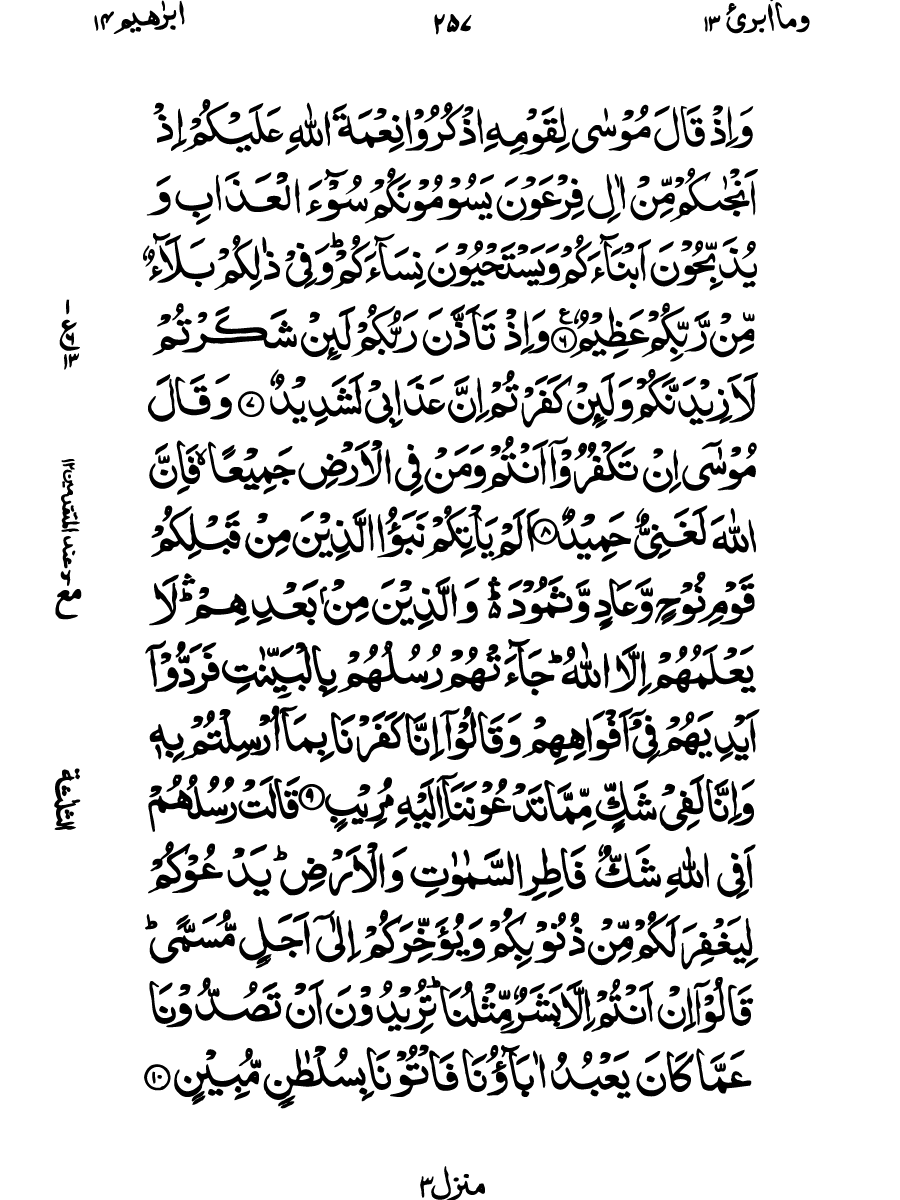 ابرٰهيم ۱۴
۲۵۷
وماۤ ابرئ ۱۳
وَاِذْ قَالَ مُوْسٰى لِقَوْمِهِ اذْكُرُوْا نِعْمَةَ اللّٰهِ عَلَيْكُمْ اِذْ
اَنْجٰىكُمْ مِّنْ اٰلِ فِرْعَوْنَ يَسُوْمُوْنَكُمْ سُوْٓءَ الْعَذَابِ وَ
يُذَبِّحُوْنَ اَبْنَآءَكُمْ وَيَسْتَحْيُوْنَ نِسَآءَكُمْ ؕ وَفِيْ ذٰلِكُمْ بَلَآءٌ
مِّنْ رَّبِّكُمْ عَظِيْمٌ ۶ وَاِذْ تَاَذَّنَ رَبُّكُمْ لَئِنْ شَكَرْتُمْ
لَاَزِيْدَنَّكُمْ وَلَئِنْ كَفَرْتُمْ اِنَّ عَذَابِيْ لَشَدِيْدٌ ۷ وَقَالَ
مُوْسٰٓى اِنْ تَكْفُرُوْٓا اَنْتُمْ وَمَنْ فِي الْاَرْضِ جَمِيْعًا ۙ فَاِنَّ
اللّٰهَ لَغَنِيٌّ حَمِيْدٌ ۸ اَلَمْ يَاْتِكُمْ نَبَؤُا الَّذِيْنَ مِنْ قَبْلِكُمْ
قَوْمِ نُوْحٍ وَّعَادٍ وَّثَمُوْدَ ۛؕ وَالَّذِيْنَ مِنْۢ بَعْدِهِمْ ۛؕ لَا
يَعْلَمُهُمْ اِلَّا اللّٰهُ ؕ جَآءَتْهُمْ رُسُلُهُمْ بِالْبَيِّنٰتِ فَرَدُّوْٓا
اَيْدِيَهُمْ فِيْٓ اَفْوَاهِهِمْ وَقَالُوْٓا اِنَّا كَفَرْنَا بِمَآ اُرْسِلْتُمْ بِهٖ
وَاِنَّا لَفِيْ شَكٍّ مِّمَّا تَدْعُوْنَنَآ اِلَيْهِ مُرِيْبٍ ۹ قَالَتْ رُسُلُهُمْ
اَفِي اللّٰهِ شَكٌّ فَاطِرِ السَّمٰوٰتِ وَالْاَرْضِ ؕ يَدْعُوْكُمْ
لِيَغْفِرَ لَكُمْ مِّنْ ذُنُوْبِكُمْ وَيُؤَخِّرَكُمْ اِلٰٓى اَجَلٍ مُّسَمًّى ؕ
قَالُوْٓا اِنْ اَنْتُمْ اِلَّا بَشَرٌ مِّثْلُنَا ؕ تُرِيْدُوْنَ اَنْ تَصُدُّوْنَا
عَمَّا كَانَ يَعْبُدُ اٰبَآؤُنَا فَاْتُوْنَا بِسُلْطٰنٍ مُّبِيْنٍ ۱۰
الثلٰثة
منزل ۳